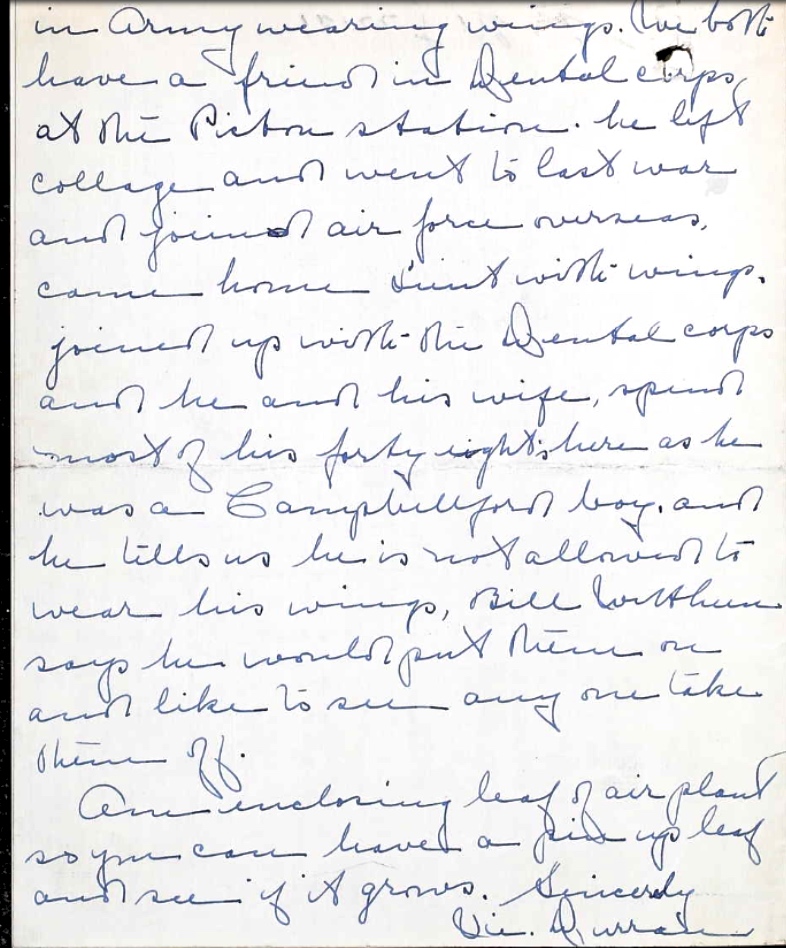 in Army wearing wings. We both
have a friend in Dental corps,
at the Picton station. he left
collage and went to last war
and joined air force overseas,
came home Liut with wings.
joined up with the Dental corps
and he and his wife, spend
most of his forty eights here as he
was a Campbellford boy. and
he tells us he is not allowed to
wear his wings, Bill
says he would put them on
and like to see any one take
them off.
Am enclosing leaf of air plant
so you can have a pin up leaf
and see if it grows. Sincerly
Vic.